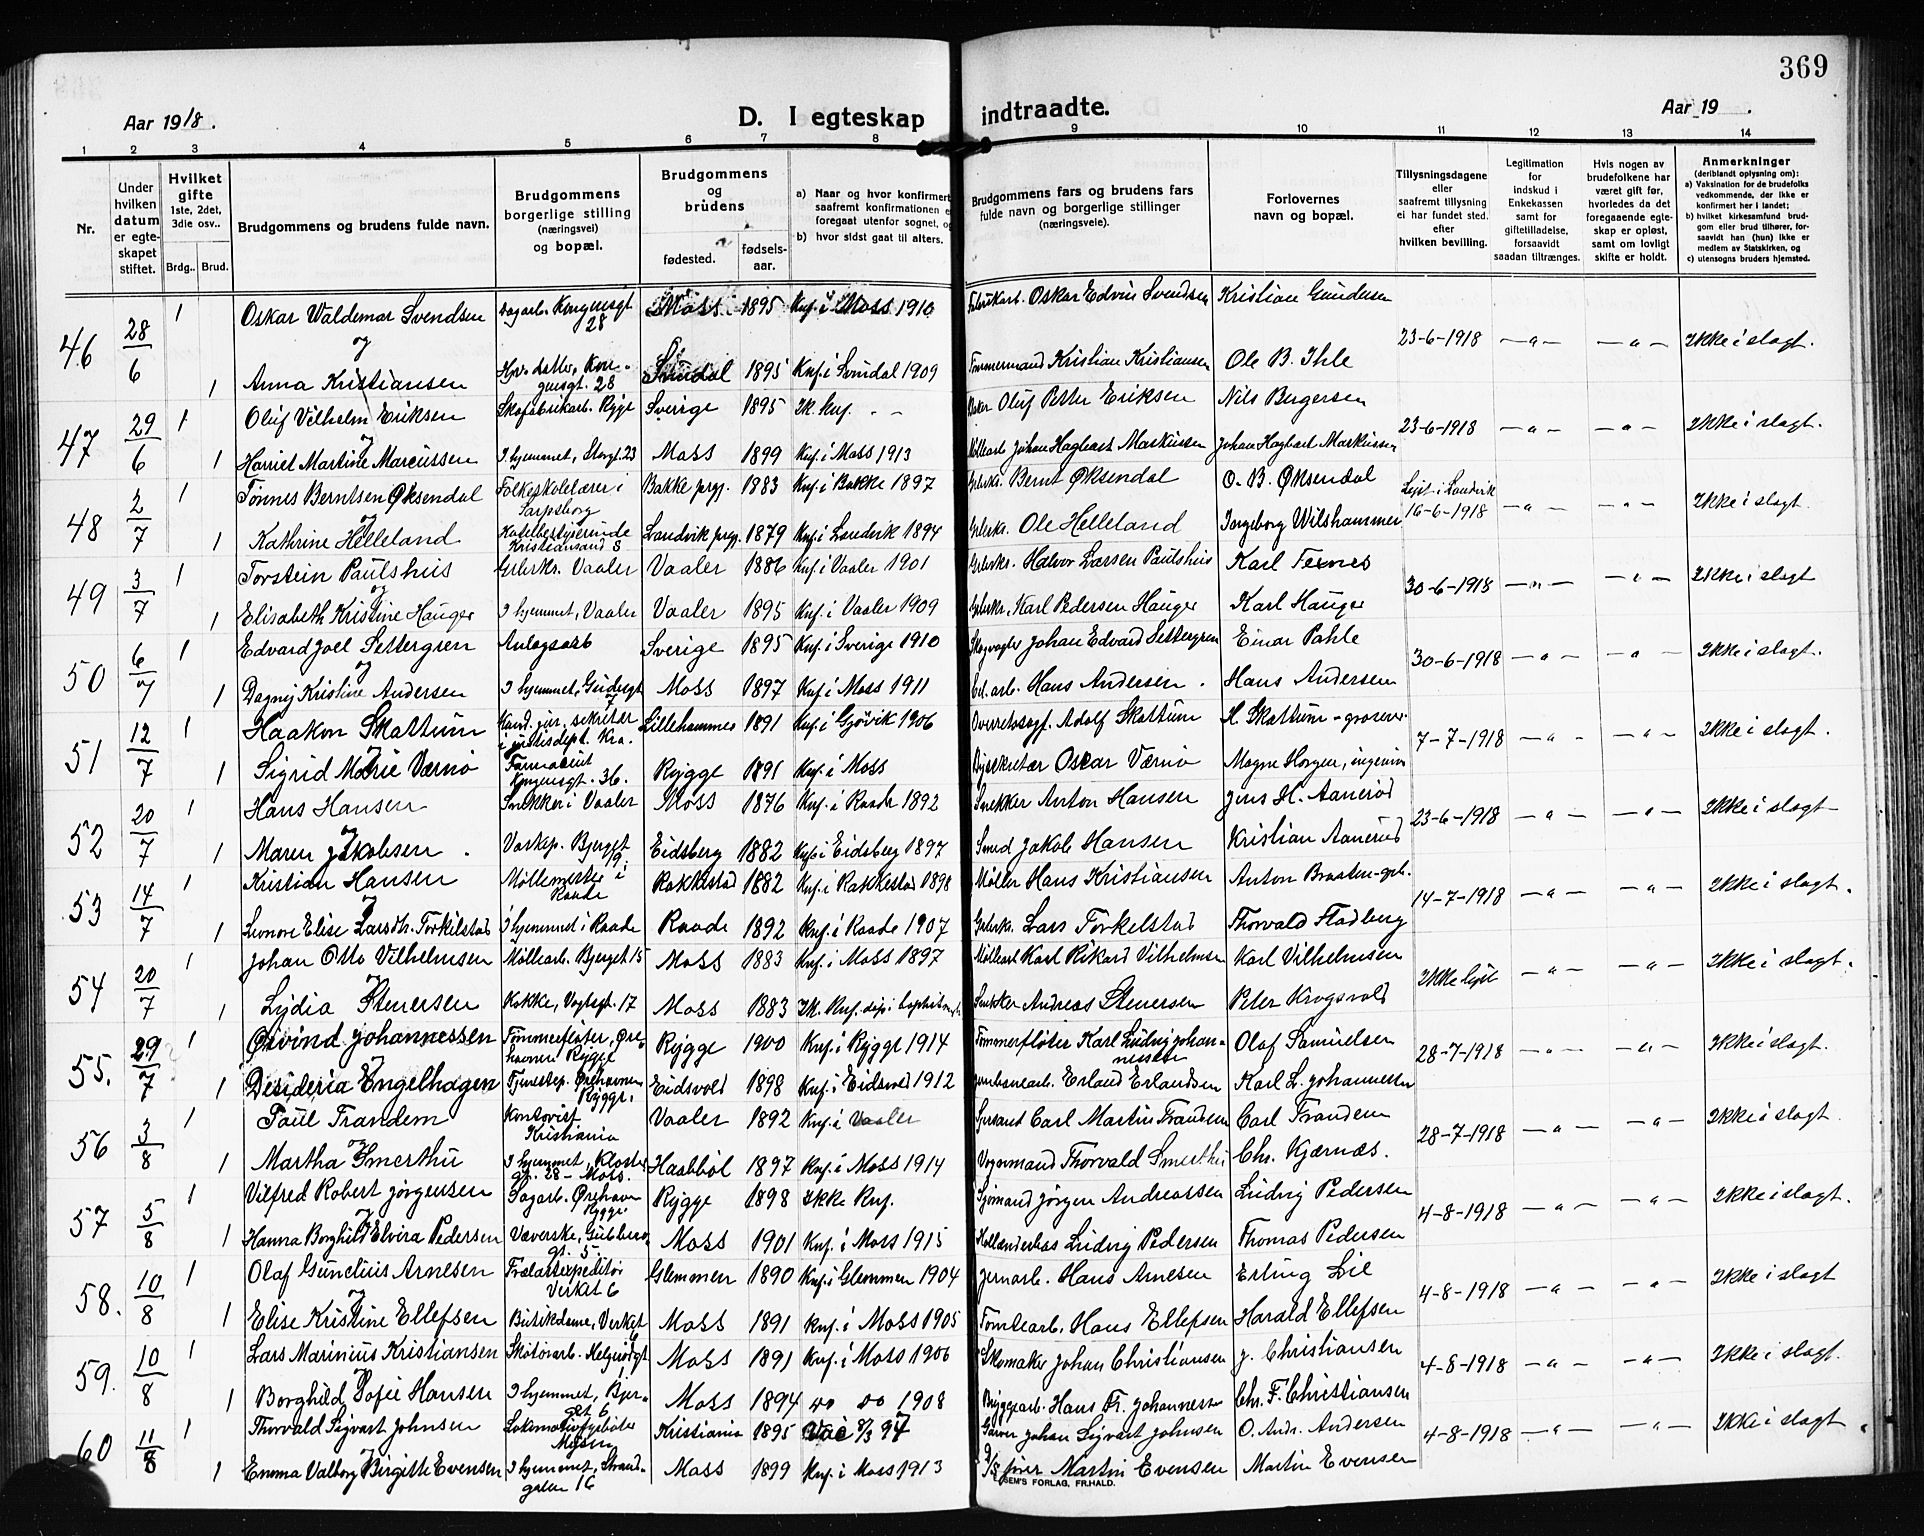 369
Aar 1918.
D. I egteskap indtraadte.
Aar 19 .
1 2 3 4 5 6 7 8 9 10 11 12 13 14
Nr.
Under hvilken datum er egteskapet stiftet.
Hvilket gifte 1ste, 2det, 3die osv..
Brdg.. Brud.
Brudgommens og brudens fulde navn.
Brudgommens borgerlige stilling (næringsvei) og bopæl.
Brudgommens og brudens
fødested.
fødsels-aar.
a) Naar og hvor konfirmert
saafremt konfirmationen e
foregaat utenfor sognet, og
b) hvor sidst gaat til alters.
Brudgommens fars og brudens fars fulde navn og borgerlige stillinger (næringsveie).
Forlovernes navn og bopæl.
Tillysningsdagene eller saafremt tillysning ei har fundet sted. efter hvilken bevilling.
Legitimation for indskud i Enkekassen samt for giftetilladelse, forsaavidt saadan tiltrænges.
Hvis nogen av brudefolkene har været gift før, hvorledes da det foregaaende egteskap er opløst, samt om lovligt skifte er holdt.
Anmerkninger (deriblandt oplysning om):
a) Vaksination for de brudefolks vedkommende, der ikke er konfirmert her i landet;
b) hvilket kirkesamfund brudgom eller brud tilhører, forsaavidt han (hun) ikke er medlem av Statskirken, og
c) utensogns bruders hjemsted.
46 28/6 1 Oskar Waldemar Svendsen Kongensgt 28 Moss 1895 Knf. i Moss 1910 Oskar Edvin Svendsen Kristian Gundersen
23-6-1918 — " — — " — Ikke i slagt.
og
1 Anna Kristiansen Kongensgt. 28 Svindal 1895 Knf. i Svindal 1909 Tømmermand Kristian Kristiansen Ole B. Ihle
47 29/6 1 Oluf Vilhelm Eriksen Skofabrikarb. Rygge Sverige 1895 Ik. knf. - - Oluf Petter Eriksen Nils Bergersen
23-6-1918 — " — — " — Ikke i slagt.
og
1 Harriet Martine Marcussen I hjemmet, Storgt. 23 Moss 1899 Knf. i Moss 1913 Johan Hagbart Markussen Johan Hagbart Markussen
48 2/7 1 Tønnes Berntsen Øksendal Folkeskolelærer i Sarpsborg Bakke prgj. 1883 Knf. i Bakke 1897 Grbrks. Bernt Øksendal O. B. Øksendal
Lyst i Landvik 16-6-1918 — " — — " — Ikke i slagt.
og
1 Kathrine Helleland Hotelbestyrerinde Kristiansand S Landvik prgj. 1879 Knf. i Landvik 1894 Grbrks. Ole Helleland Ingeborg Wilshammer
49 3/7 1 Torstein Paulshus Grbrks. Vaaler Vaaler 1886 Knf. i Vaaler 1901 Grbrks. Halvor Larsen Paulshus Karl Texnes
30-6-1918 — " — — " — Ikke i slagt
og
1 Elisabeth Kristine Hauger I hjemmet, Vaaler Vaaler 1895 Knf. i Vaaler 1909 Grbrks. Karl Pedersen Hauger Karl Hauger
50 6/7 1 Edvard Joel Settergren Anlegsarb Sverige 1895 Knf. i Sverige 1910 Skogvogter Johan Edvard Settergren Einar Pahle
30-6-1918 — " — — " — Ikke i slagt.
og
1 Dagny Kristine Andersen I hjemmet, Gudesgt 7 Moss 1897 Knf. i Moss 1911 Hans Andersen. Hans Andersen
51 12/7 1 Haakon Skattum Kand. jur., sekretær i justisdept. Kra. Lillehammer 1891 Knf. i Gjøvik 1906 Overretssagf. Adolf Skattum H. Skattum - grosserer
7-7-1918 — " — — " — Ikke i slagt.
og
1 Sigrid Marie Værnø Farmaceut Kongensgt. 36. Rygge 1891 Knf. i Moss Oscar Værnø Magne Horgen, ingeniør
52 20/7 1 Hans Hansen Snekker i Vaaler Moss 1876 Knf. i Raade 1892 Snekker Anton Hansen Jens H. Aanerød
23-6-1918 — " — — " — Ikke i slagt
og
1 Maren Jakobsen. Vaskep. Bjerget 9. Eidsberg 1882 Knf. i Eidsberg 1897 Smed Jakob Hansen Kristian Aanerød
53 14/7 1 Kristian Hansen Møllemester i Raade Rakkestad 1882 Knf. i Rakkestad 1898 Møller Hans Kristiansen Anton Braaten - grb.
14-7-1918 — " — — " — Ikke i slagt.
og
1 Leonore Elise Larsdtr. Torkilstad I hjemmet i Raade Raade 1892 Knf. i Raade 1907 Grbrks. Lars Torkelstad Thorvald Stadberg
54 20/7 1 Johan Otto Vilhelmsen Møllearb. Bjerget 15 Moss 1883 Knf. i Moss 1897 Møllearb Karl Rikard Vilhelmsen Karl Vilhelmsen
Ikke lyst — " — — " — Ikke i slagt.
og
1 Lydia Stenersen Kokke, Vogtsgt. 17 Moss 1883 Ik. Knf. Snekker Andreas Stenersen Peter Krogsvold
55. 29/7 1 Øivind Johannessen Tømmerfløter, Ørehavnen Rygge Rygge 1900 Knf. i Rygge 1914 Tømmerfløter Karl Ludvig Johannessen Olaf Samuelsen
28-7-1918 — " — — " — Ikke i slagt.
og
1 Desideria Engelhagen Tjenestep. Ørehavnen Rygge. Eidsvold 1898 Knf. i Eidsvold 1912 Jernbanearb. Erland Erlandsen Karl L. Johannessen
56 3/8 1 Paul Trandem Kontorist Kristiania Vaaler 1892 Knf. i Vaaler Gersant Carl Martin Trandem Carl Trandem
28-7-1918 — " — — " — Ikke i slagt.
og
1 Martha Smerthu I hjemmet, Kloster gt. 28 - Moss. Haabbøl 1897 Knf. i Moss 1914 Vognmand Thorvald Smerthu Chr. Kjærnæs.
57 5/8 1 Vilfred Robert Jørgensen Sagarb. Ørehavn Rygge. Rygge 1898 Ikke Knf. Sjømand Jørgen Andreassen Ludvig Pedersen
4-8-1918 — " — — " — Ikke i slagt.
og
1 Hanna Borghild Elvira Pedersen Væverske, Gudes gt. 5 Moss 1901 Knf. i Moss 1915 Ludvig Pedersen Thomas Pedersen
58. 10/8 1 Olaf Gunelius Arnesen Trælastexpeditør Verket 6 Glemmen 1890 Knf. i Glemmen 1904 Jernarb. Hans Arnesen Erling Lie
4-8-1918 — " — — " — Ikke i slagt
og
1 Elise Kristine Ellefsen Butikdame, Verket 6 Moss 1891 Knf. i Moss 1905 Tomtearb. Hans Ellefsen Harald Ellefsen
59. 10/8 1 Lars Marinius Kristiansen Skotøiarb. Helgerødgt 1 Moss 1891 Knf. i Moss 1906 Skomaker Johan Christiansen J. Christiansen
4-8-1918 — " — — " — Ikke i slagt.
og
1 Borghild Sofie Hansen I hjemmet, Bjerget 6 Moss 1894 do do 1908 Bryggearb. Hans Fr. Johannessen Chr. F. Christiansen
60 11/8 1 Thorvald Sigvart Johnsen Lokomotivfyrbøter Mysen Kristiania 1895 Vac 8/3 97 Garver Johan Sigvart Johnsen O. Andr. Andersen
4-8-1918 — " — — " — Ikke i slagt
og
1 Emma Valborg Birgitte Evensen I hjemmet, Strandgaten 16 Moss 1899 Knf. i Moss 1913 Martin Evensen Martin Evensen
SEM'S FORLAG, FR.HALD.